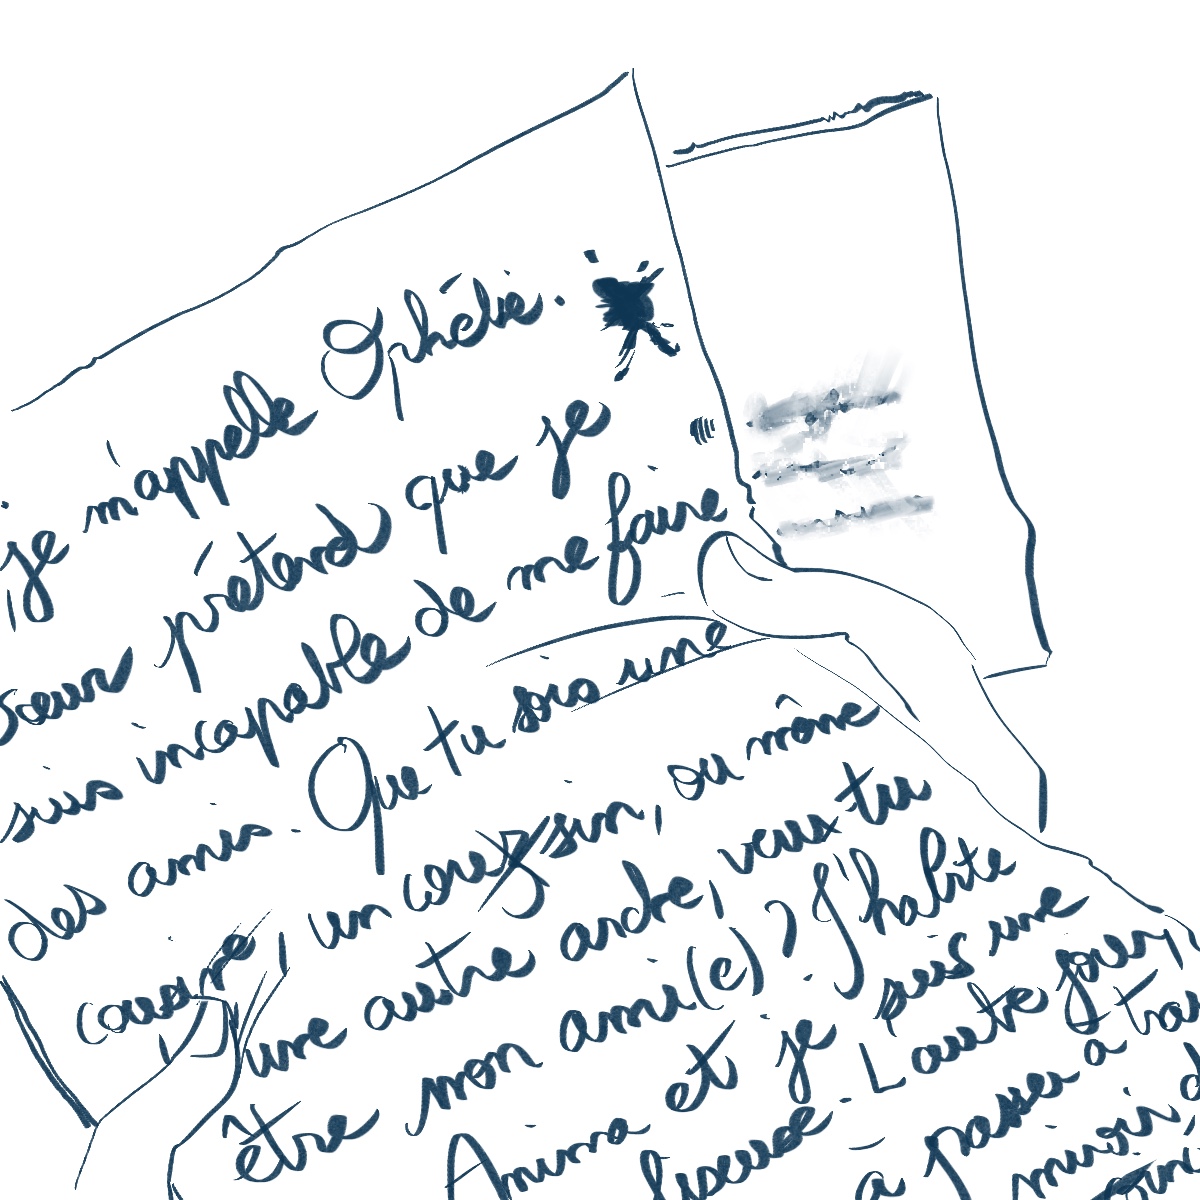 je m'appelle Ophélie.
sœur prétend que je
suis incapable de me faire
des amis. Que tu sois une
cousine, un cousin, ou même
une autre arche, veux-tu
être mon ami(e) ? J'habite
Anima et je suis une
liseuse. L'autre jour,
a passer à
miroir,